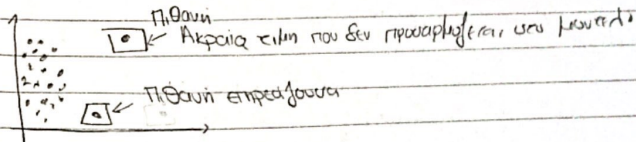 Πιθανή
Ακραία τιμή που δεν προσαρμόζεται στο μοντέλο
Πιθανή επηρεάζουσα